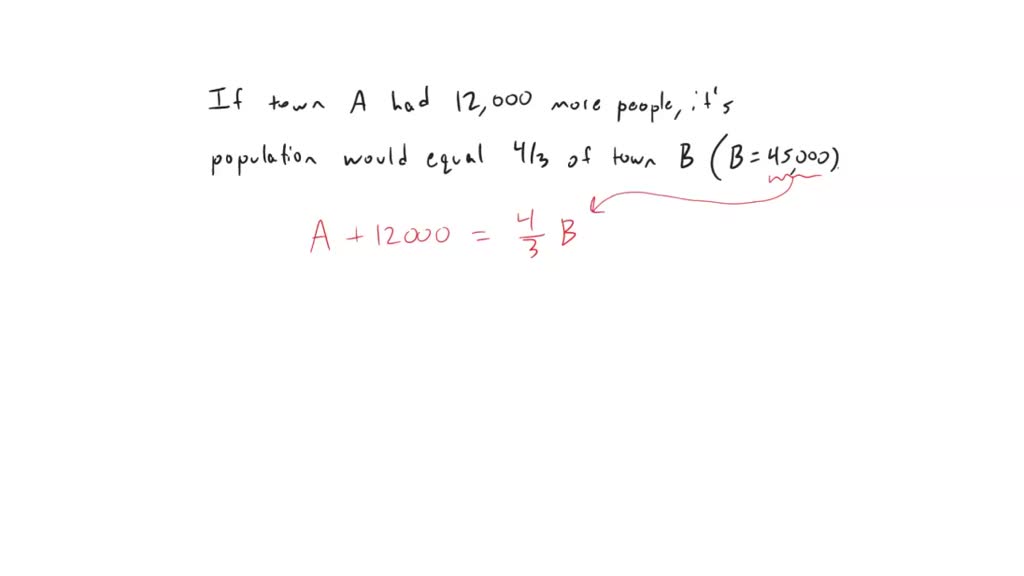 If town A had 12,000 more people, it's
population would equal 4/3 of town B (B=45,000)
A + 12000 = 4/3 B